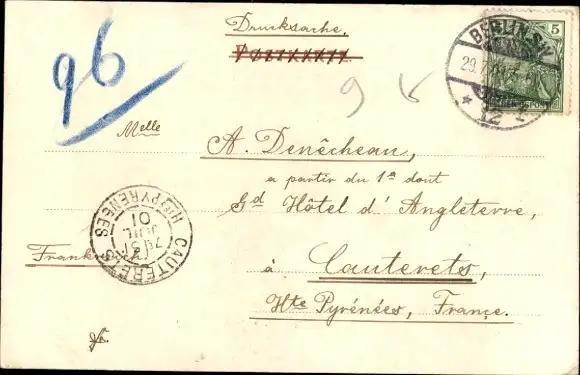 Drucksache.
Postkarte
96
9
BERLIN S.W.
29.7
12
5
Melle
A. Denêcheau,
a partir du 1er dout
Gd Hôtel d'Angleterre,
Frankreich
à Cauterets,
Hte Pyrénées, France.
CAUTERETS
JUIL
01
HTES PYRENEES